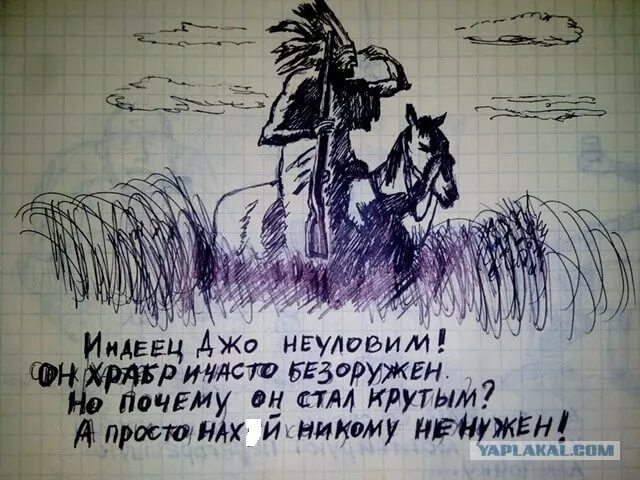 Индеец Джо неуловим!
Он храбр и часто безоружен.
Но почему он стал крутым?
А просто нах й никому не нужен!
YAPLAKAL.COM